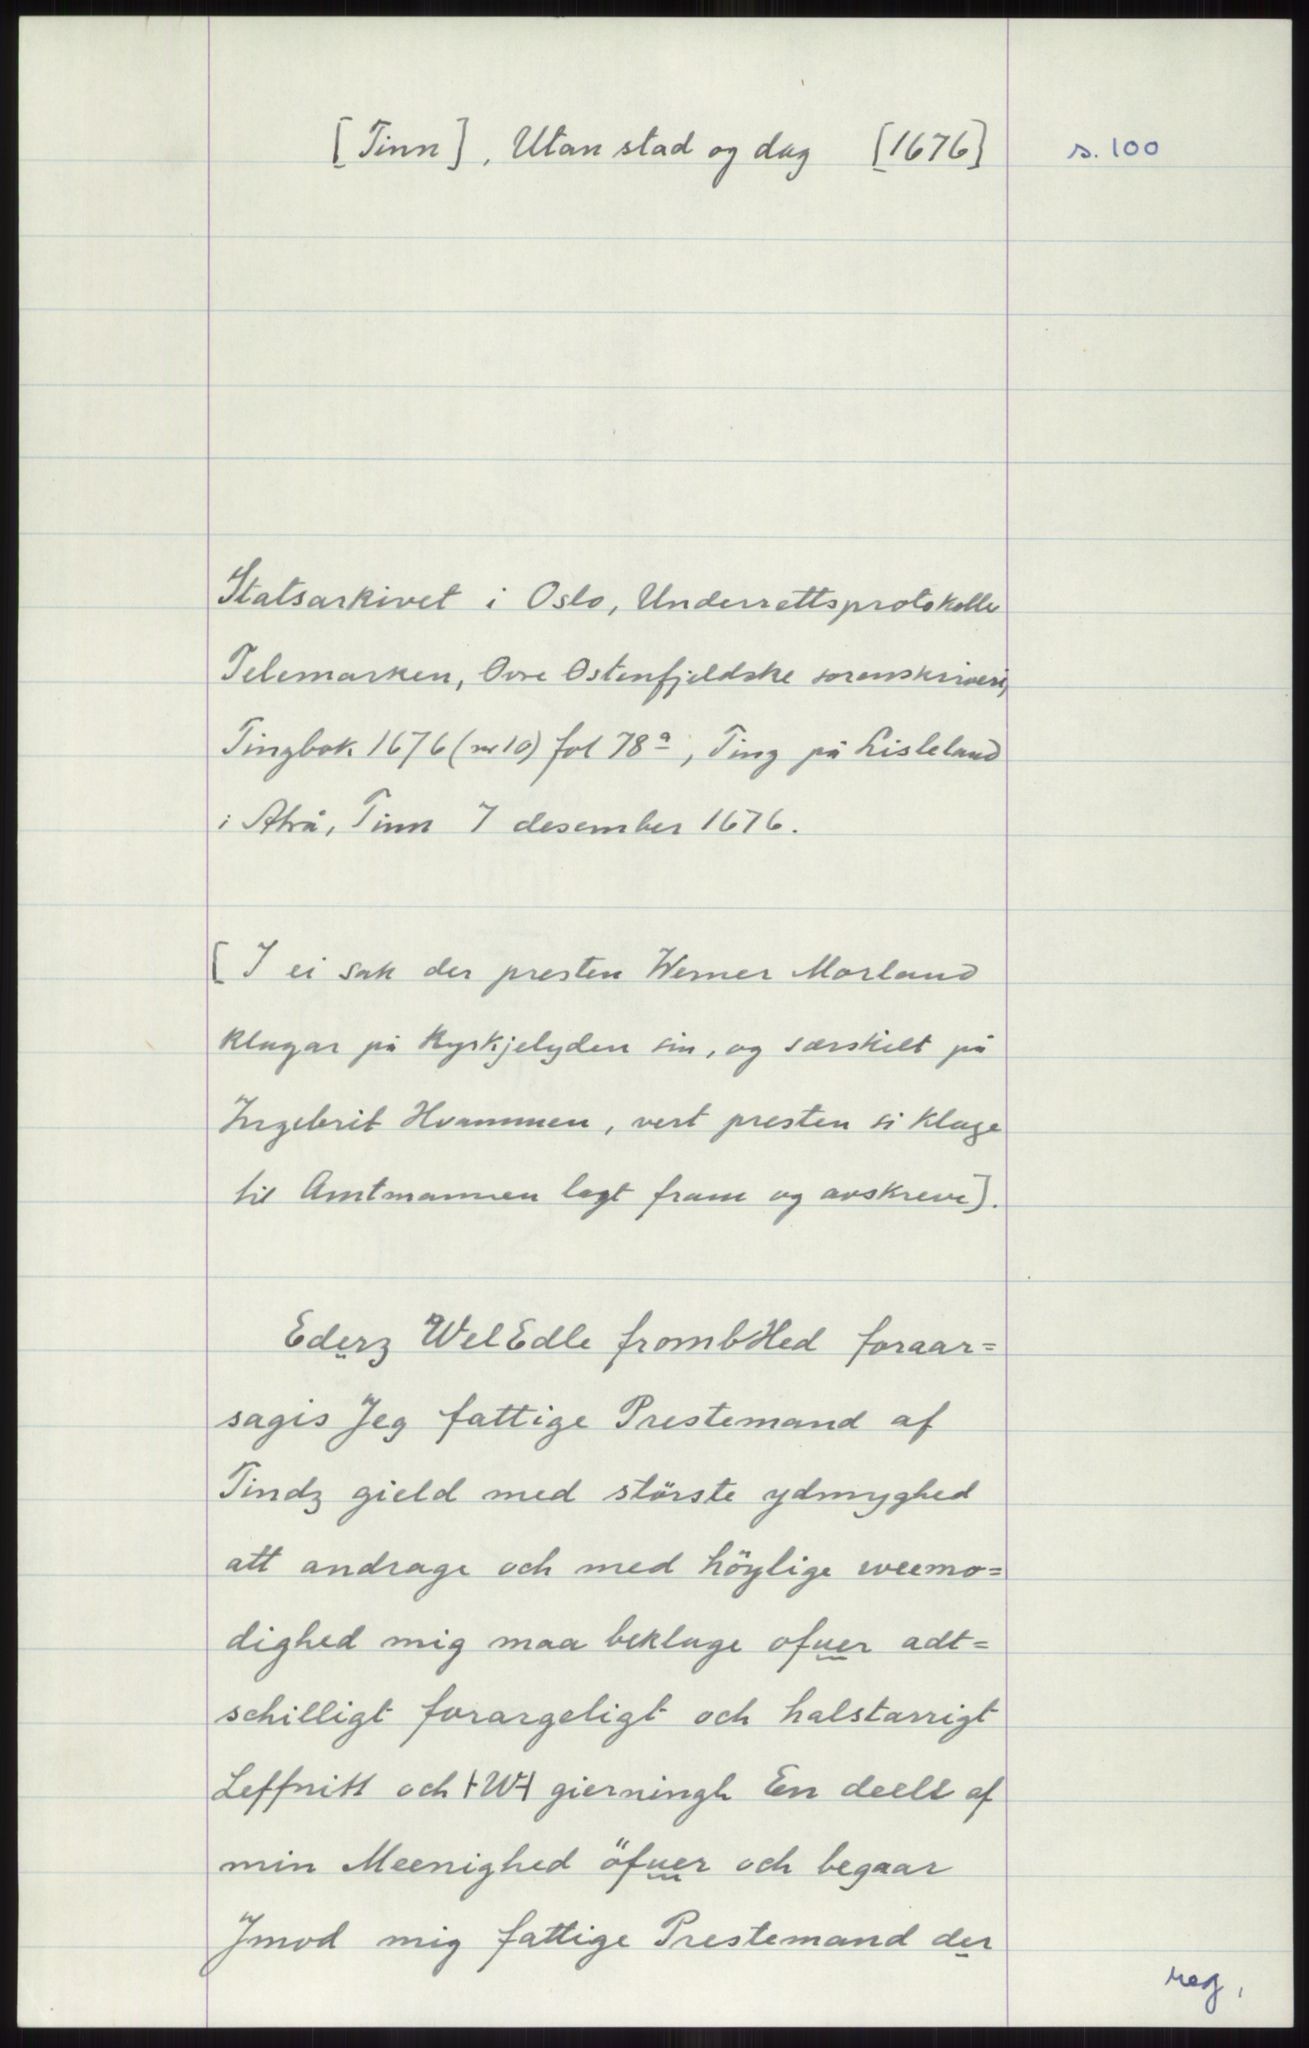 [Tinn], Utan stad og dag [1676] s. 100
Statsarkivet i Oslo, Underrettsprotokolle
Telemarken, Øvre Østenfjeldske sorenskriveri,
Tingbok 1676 (nr 10) fol 78a, Ting på Lisleland
i Atrå, Tinn 7 desember 1676.
[I ei sak der presten Werner Morland
klagar på kyrkjelyden sin, og særskilt på
Ingebrit Hvammen, vert presten si klage
til Amtmannen lagt fram og avskreve].
Ederz WelEdle frombHed foraar=
sagis Jeg fattige Prestemand af
Tindz gield med störste ydmyghed
att andrage och med höylige weemo=
dighed mig maa beklage ofuer adt=
schilligt forargeligt och halstarrigt
Leffnitt och ⊦W⊣ gierningh En deell af
min Meenighed öfuer och begaar
Jmod mig fattige Prestemand der
reg.